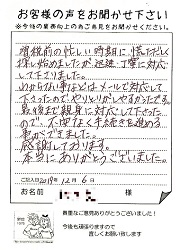 お客様の声をお聞かせ下さい
※今後の業務向上の為ご意見をお聞かせください。
増税前の忙しい時期に慌ただしく
探し始めましたが、迅速、丁寧に対応
して下さりました。
いつからない事などはメールで対応して
下さったので、やりとりがしやすかったです。
最後まで親身に対応して下さった
ので、不備なく手続きを進める
事ができました。
感謝しております。
本当にありがとうございました。
ご記入日2019年12月6日
お名前
貴重なご意見ありがとうございました!
今後も頑張りますので
宜しくお願い致します